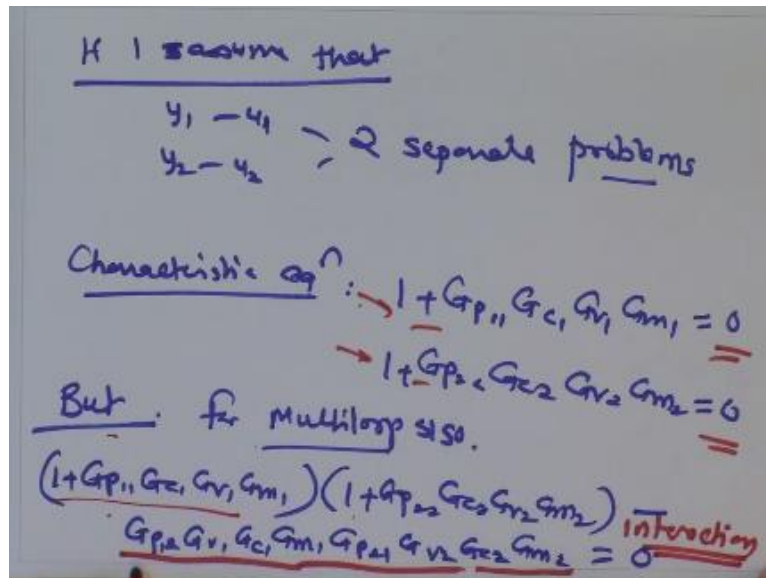 If I assume that
y₁ – u₁
y₂ – u₂ } 2 separate problems
Characteristic eqⁿ: → 1 + Gp₁₁ Gc₁ Gv₁ Gm₁ = 0
→ 1 + Gp₂₂ Gc₂ Gv₂ Gm₂ = 0
But for Multiloop SISO.
(1+Gp₁₁ Gc₁ Gv₁ Gm₁)(1+Gp₂₂ Gc₂ Gv₂ Gm₂) – interaction
Gp₁₂ Gv₁ Gc₁ Gm₁ Gp₂₁ Gv₂ Gc₂ Gm₂ = 0